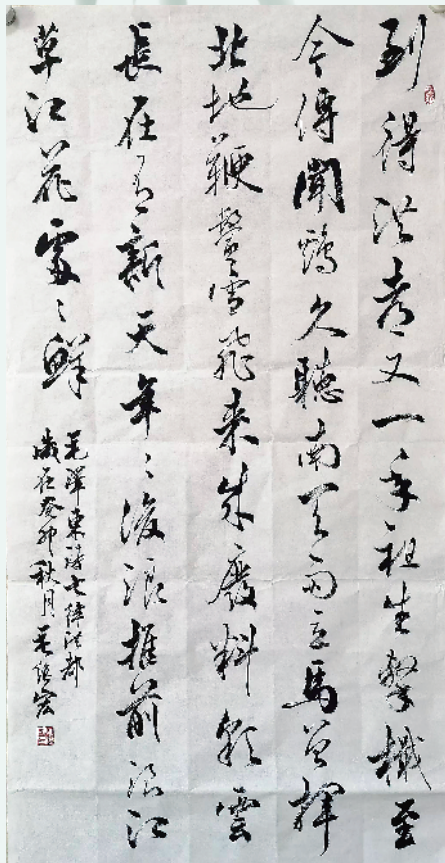 到得洪都又一年祖生擊楫至
今傳聞鷄久聽南天雨立馬曾揮
北地鞭鬢雪飛来成廢料彩雲
長在有新天年々後浪推前浪江
草江花處々鮮
毛澤東詩七律洪都
歲在癸卯秋月毛